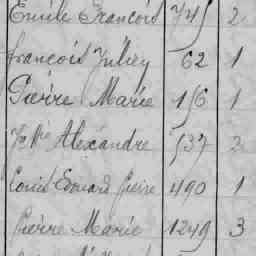 Emile François 745 2
françois Julien 62 1
Pierre Marie 156 1
Alexandre 537 2
Louis Edouard Pierre 490 1
Pierre Marie 1249 3